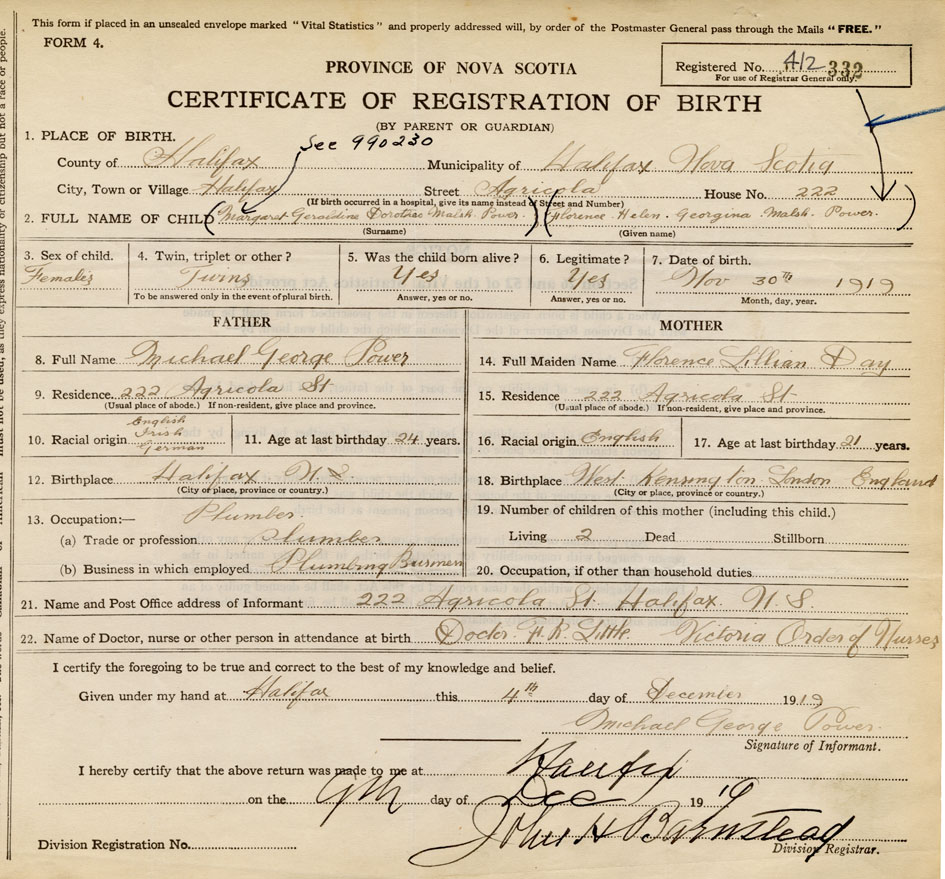 This form if placed in an unsealed envelope marked “Vital Statistics” and properly addressed will, by order of the Postmaster General pass through the Mails “FREE.”
FORM 4.
Registered No. 412 332
For use of Registrar General only.
PROVINCE OF NOVA SCOTIA
CERTIFICATE OF REGISTRATION OF BIRTH
(BY PARENT OR GUARDIAN)
1. PLACE OF BIRTH.
See 990230
County of Halifax Municipality of Halifax Nova Scotia
City, Town or Village Halifax Street Agricola House No. 222
(If birth occurred in a hospital, give its name instead of Street and Number)
2. FULL NAME OF CHILD (Margaret Geraldine Dorothae Malsh. Power.) (Florence. Helen. Georgina. Malsh. Power.)
(Surname) (Given name)
3. Sex of child. 4. Twin, triplet or other? 5. Was the child born alive? 6. Legitimate? 7. Date of birth.
Females Twins Yes Yes Nov 30th 1919
To be answered only in the event of plural birth. Answer, yes or no. Answer, yes or no. Month, day, year.
FATHER MOTHER
8. Full Name Michael George Power 14. Full Maiden Name Florence Lillian Day
9. Residence. 222 Agricola St 15. Residence 222 Agricola St
(Usual place of abode.) If non-resident, give place and province. (Usual place of abode.) If non-resident, give place and province.
10. Racial origin English Irish German 11. Age at last birthday 24 years. 16. Racial origin English 17. Age at last birthday 21 years.
12. Birthplace Halifax N.S. 18. Birthplace West Kensington London England
(City or place, province or country.) (City or place, province or country.)
13. Occupation:— Plumber 19. Number of children of this mother (including this child.)
(a) Trade or profession Plumber Living 2 Dead Stillborn
(b) Business in which employed Plumbing Business 20. Occupation, if other than household duties
21. Name and Post Office address of Informant 222 Agricola St. Halifax. N.S.
22. Name of Doctor, nurse or other person in attendance at birth Doctor F.R. Little Victoria Order of Nurses
I certify the foregoing to be true and correct to the best of my knowledge and belief.
Given under my hand at Halifax this 4th day of December 1919
Michael George Power.
Signature of Informant.
I hereby certify that the above return was made to me at Halifax
on the 9th day of Dec 1919
John H Barnstead
Division Registration No. Division Registrar.